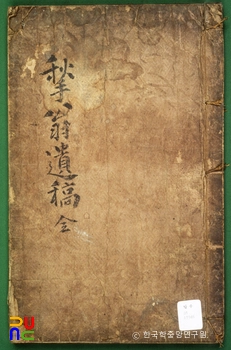 揫翁遺稿 全
© 한국학중앙연구원